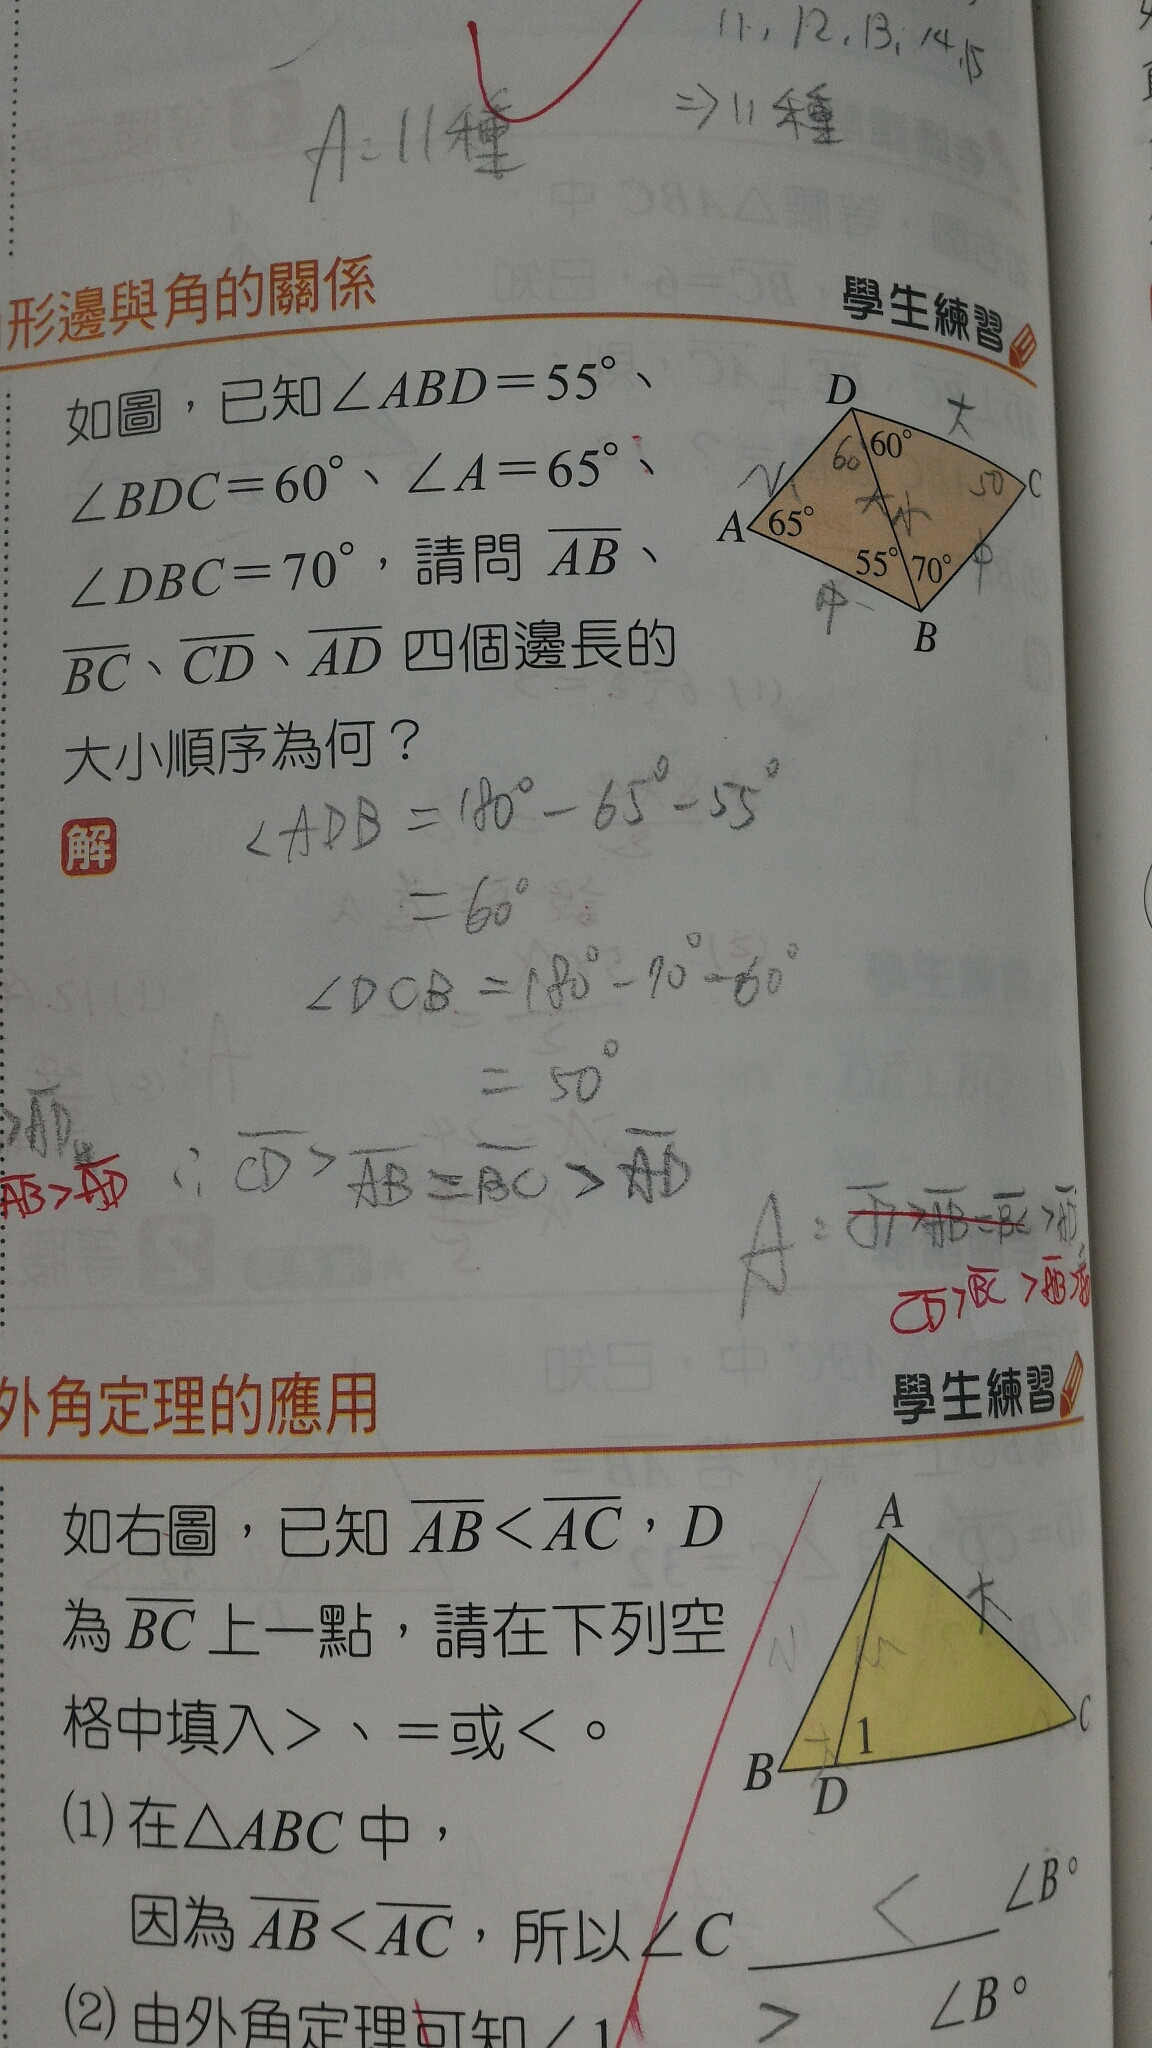 11, 12, 13, 14, 15
⇒ 11種
A=11種
形邊與角的關係
學生練習
如圖，已知∠ABD=55°、
∠BDC=60°、∠A=65°、
∠DBC=70°，請問 AB、
BC、CD、AD 四個邊長的
大小順序為何？
D
大
60°
60°
50
C
小
大
小
A
65°
55°
70°
中
中
B
解
∠ADB =180°-65°-55°
=60°
∠DCB =180°-70°-60°
= 50°
>AD
AB>AD
∴ CD > AB = BC > AD
A: CD>AB=BC>AD
CD>BC>AB>AD
外角定理的應用
學生練習
如右圖，已知 AB<AC，D
為 BC 上一點，請在下列空
格中填入>、=或<。
A
大
小
1
C
B
D
(1) 在△ABC 中，
因為 AB<AC，所以∠C < ∠B。
(2) 由外角定理可知∠1 > ∠B。